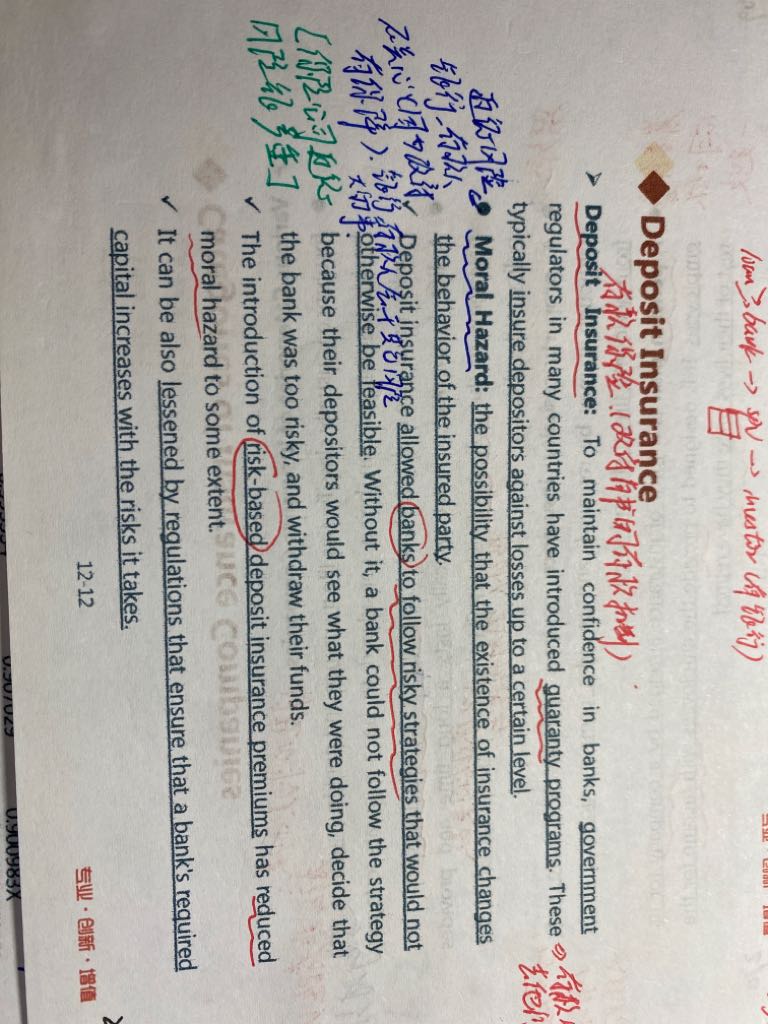 loan → bank → spv → investor (非银行)
Deposit Insurance
存款保险 (政府背书的存款机制)
➢ Deposit Insurance: To maintain confidence in banks, government
regulators in many countries have introduced guaranty programs. These
typically insure depositors against losses up to a certain level.
• Moral Hazard: the possibility that the existence of insurance changes
the behavior of the insured party.
✓ Deposit insurance allowed banks to follow risky strategies that would not
otherwise be feasible. Without it, a bank could not follow the strategy
because their depositors would see what they were doing, decide that
the bank was too risky, and withdraw their funds.
✓ The introduction of risk-based deposit insurance premiums has reduced
moral hazard to some extent.
✓ It can be also lessened by regulations that ensure that a bank's required
capital increases with the risks it takes.
道德风险
银行、存款人
不关心(因为政府
有保障)
12-12
专业·创新·增值
0.900983X